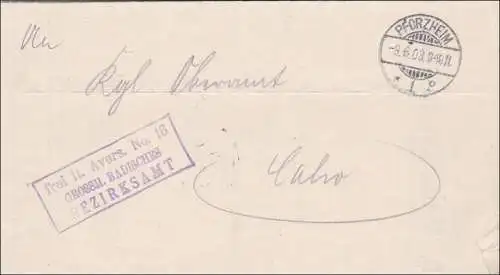 An
PFORZHEIM
-9.6.03.9-10.V.
* 1 c
Kgl Oberamt
frei lt. Avers. No. 16
GROSSH. BADISCHES
BEZIRKSAMT
Calw